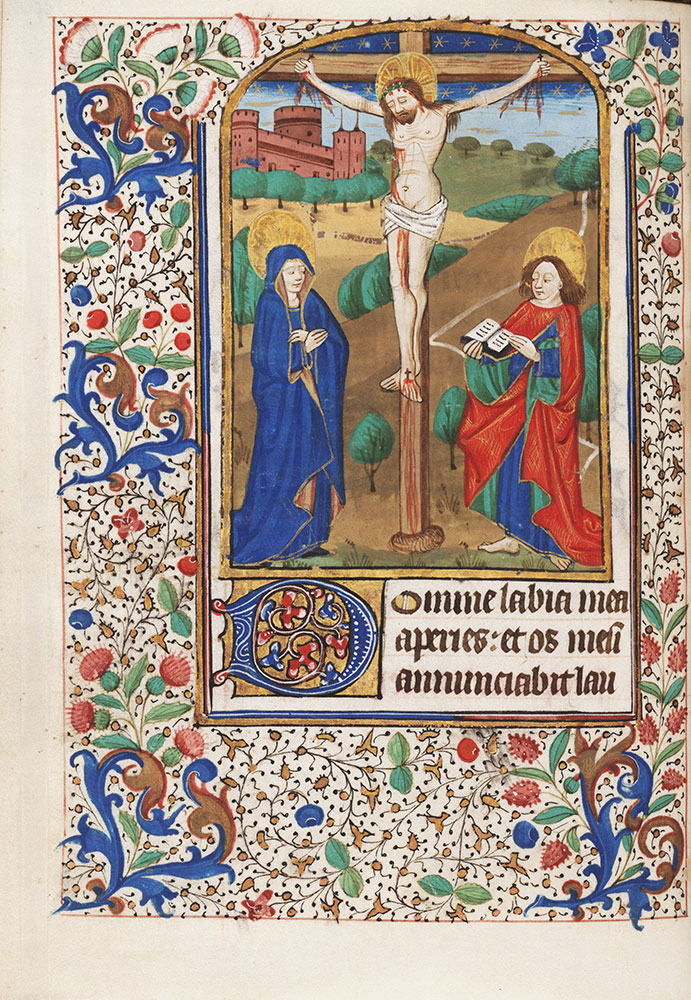 Domine labia mea
aperies: et os meū
annunciabit lau